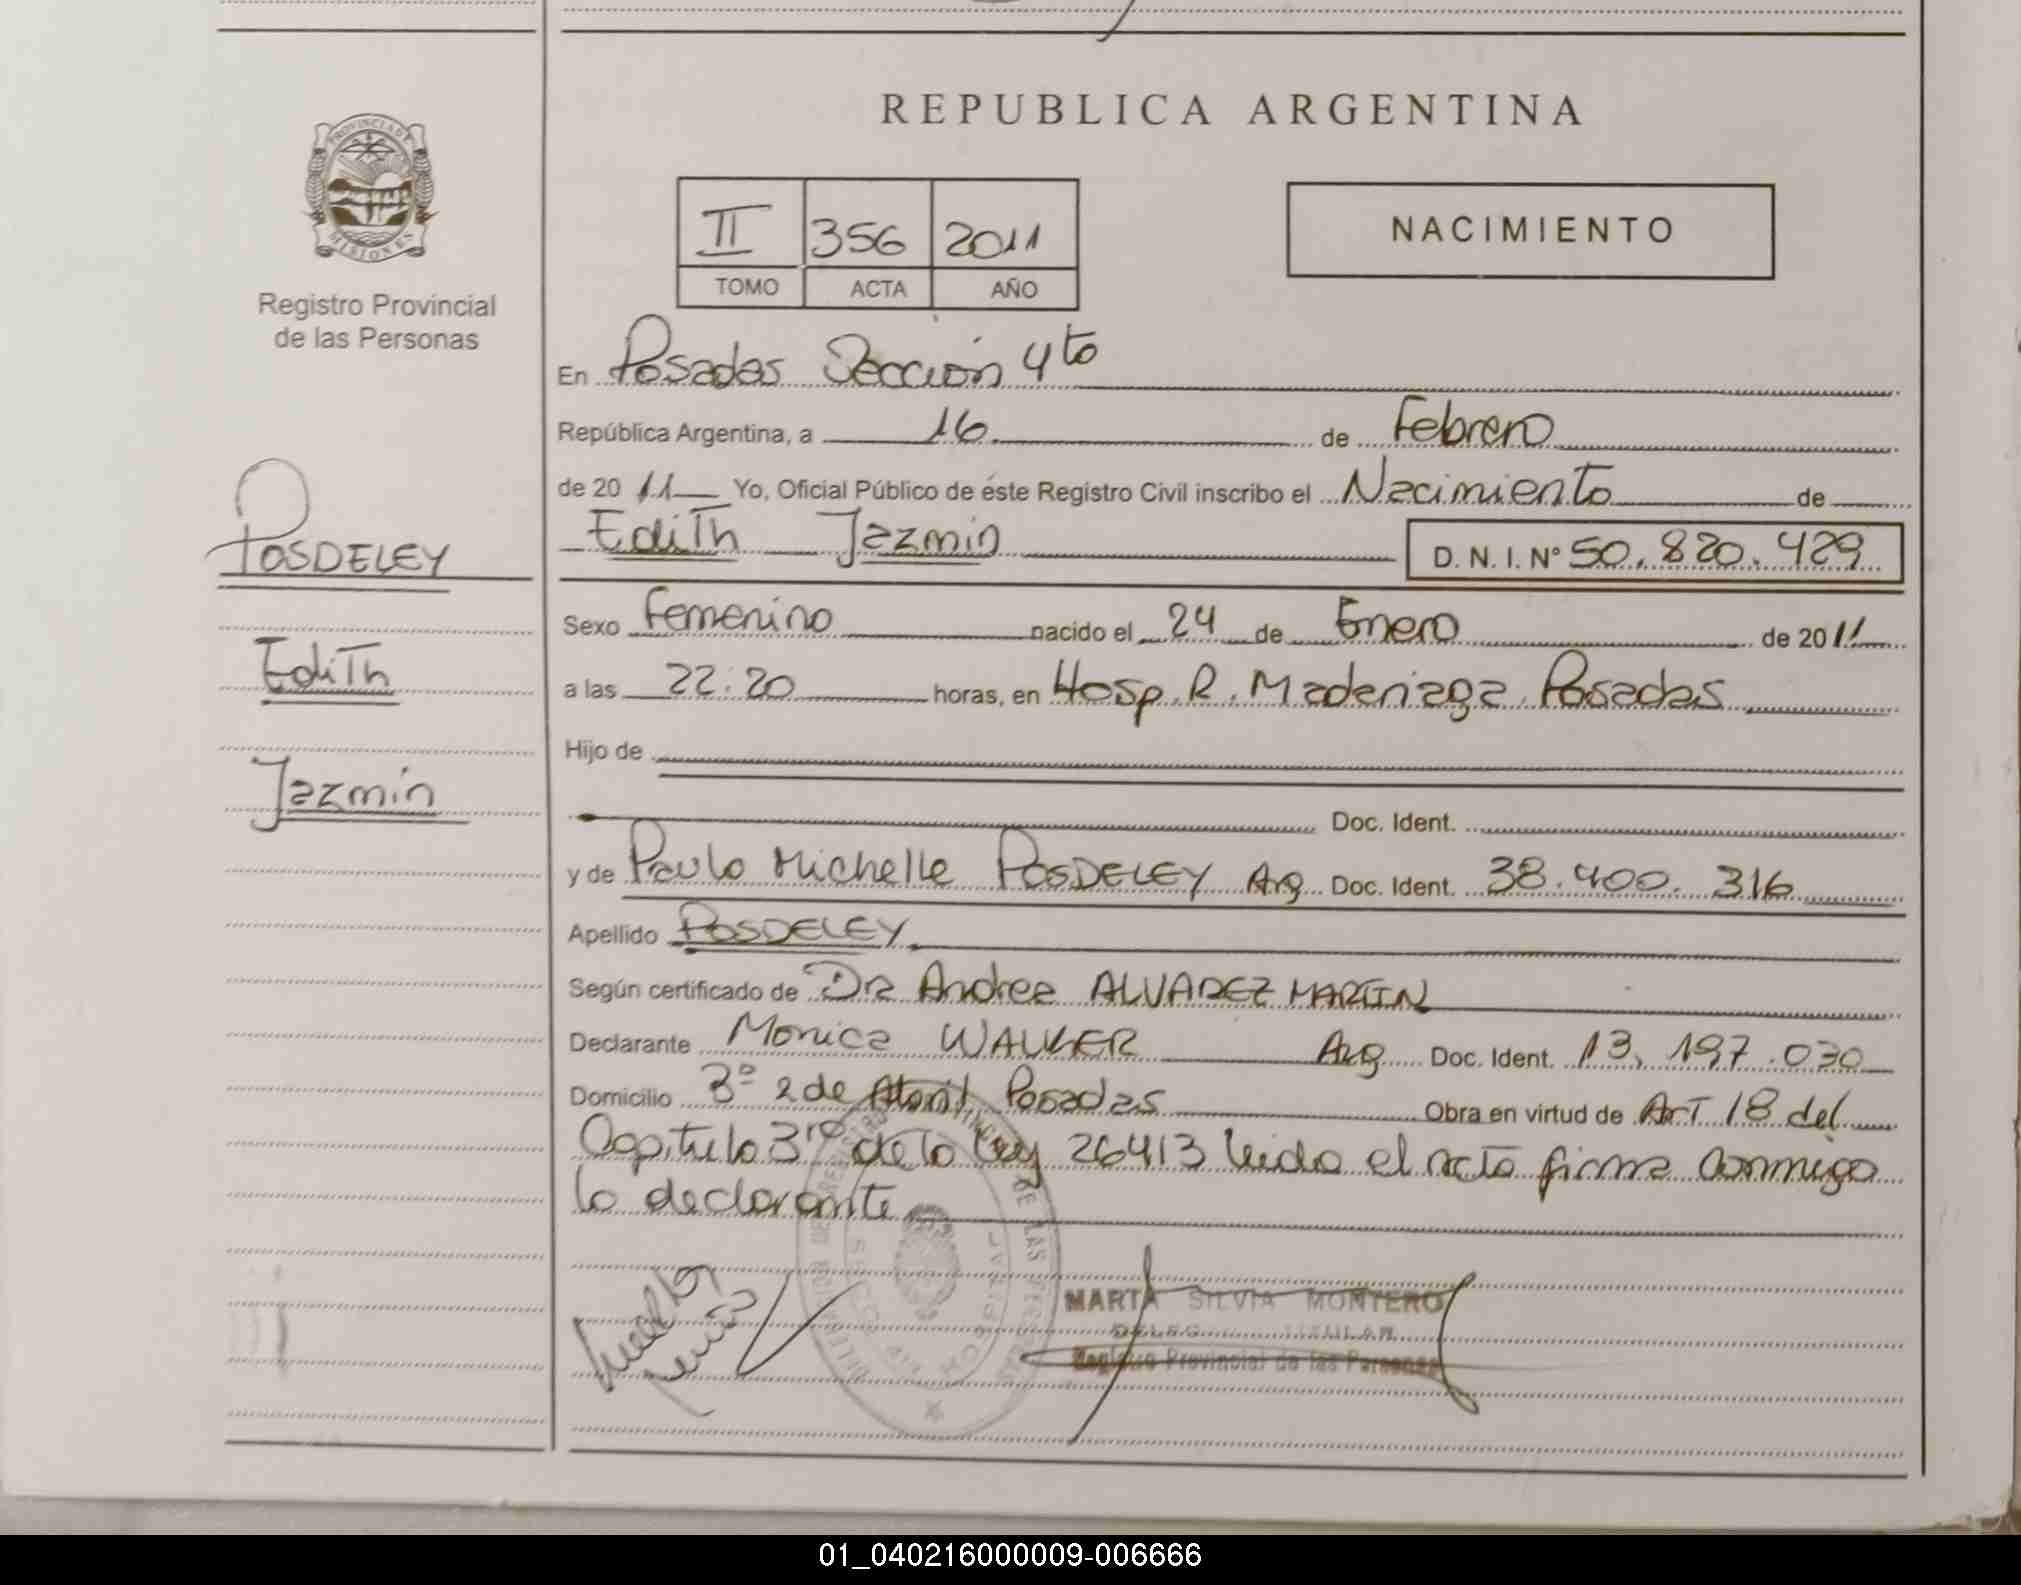 REPUBLICA ARGENTINA
PROVINCIA DE
MISIONES
Registro Provincial
de las Personas
II 356 2011
TOMO ACTA AÑO
NACIMIENTO
En Posadas Sección 4to
República Argentina, a 16 de Febrero
de 2011 Yo, Oficial Público de éste Registro Civil inscribo el Nacimiento de
Edith Jazmin D. N. I. Nº 50.820.429
POSDELEY
Edith
Jazmin
Sexo Femenino nacido el 24 de Enero de 2011
a las 22:20 horas, en Hosp. R. Madariaga Posadas
Hijo de
Doc. Ident.
y de Paula Michelle POSDELEY Arg Doc. Ident. 38.400.316
Apellido POSDELEY
Según certificado de Dra Andrea ALVAREZ MARTIN
Declarante Monica WALKER Arg Doc. Ident. 13.197.030
Domicilio 3º 2 de Abril, Posadas Obra en virtud de Art 18 del
Capitulo 3ro de la Ley 26413 leida el acta firma conmigo
la declarante
MARTA SILVIA MONTERO
TITULAR
Registro Provincial de las Personas
01_040216000009-006666